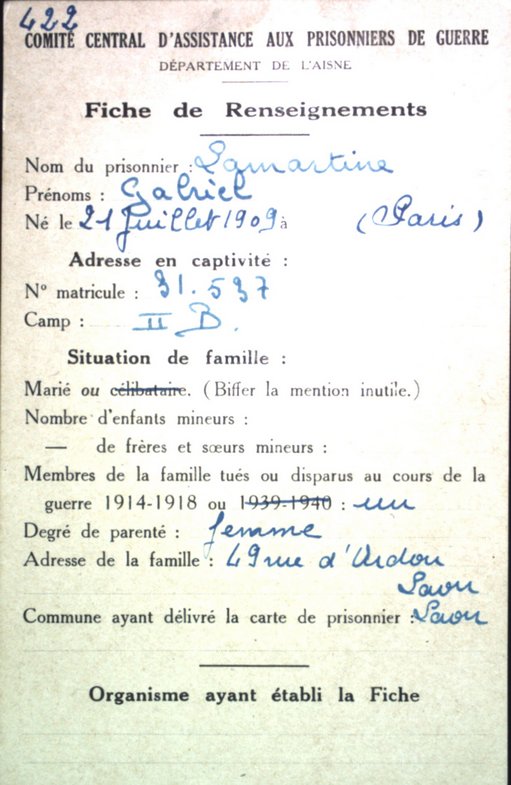 422
COMITÉ CENTRAL D'ASSISTANCE AUX PRISONNIERS DE GUERRE
DÉPARTEMENT DE L'AISNE
Fiche de Renseignements
Nom du prisonnier : Lamartine
Prénoms : Gabriel
Né le 21 Juillet 1909 à (Paris)
Adresse en captivité :
N° matricule : 31.537
Camp : II B.
Situation de famille :
Marié ou célibataire. (Biffer la mention inutile.)
Nombre d'enfants mineurs :
— de frères et sœurs mineurs :
Membres de la famille tués ou disparus au cours de la
guerre 1914-1918 ou 1939-1940 : un
Degré de parenté : femme
Adresse de la famille : 49 rue d'Ardon
Laon
Commune ayant délivré la carte de prisonnier : Laon
Organisme ayant établi la Fiche